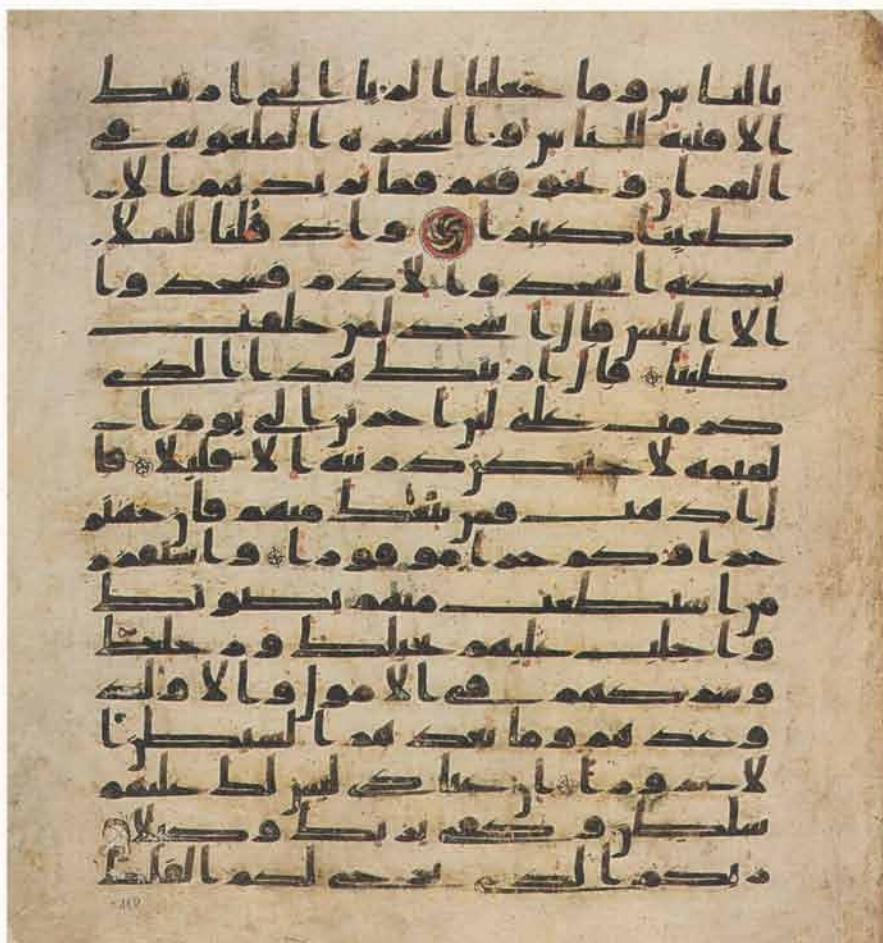 بالناس وما جعلنا الريا التي اريتك
الا فتنة للناس والشجرة الملعونة في
القران ونخوفهم فما يزيدهم الا
طغينا كبيرا واذ قلنا للملا
ئكة اسجدوا لادم فسجدوا
الا ابليس قال اسجد لمن خلقت
طينا قال اريتك هذا الذي
كرمت علي لئن اخرتن الى يوم ا
لقيمة لاحتنكن ذريته الا قليلا قا
ل اذهب فمن تبعك منهم فان جهنم
جزاوكم جزا موفورا واستفزز
من استطعت منهم بصوتك
واجلب عليهم بخيلك ورجلك
وشركهم في الامول والاولد
وعدهم وما يعدهم الشيطن ا
لا غرورا ان عبادي ليس لك عليهم
سلطن وكفى بربك وكيلا
ربكم الذي يزجي لكم الفلك